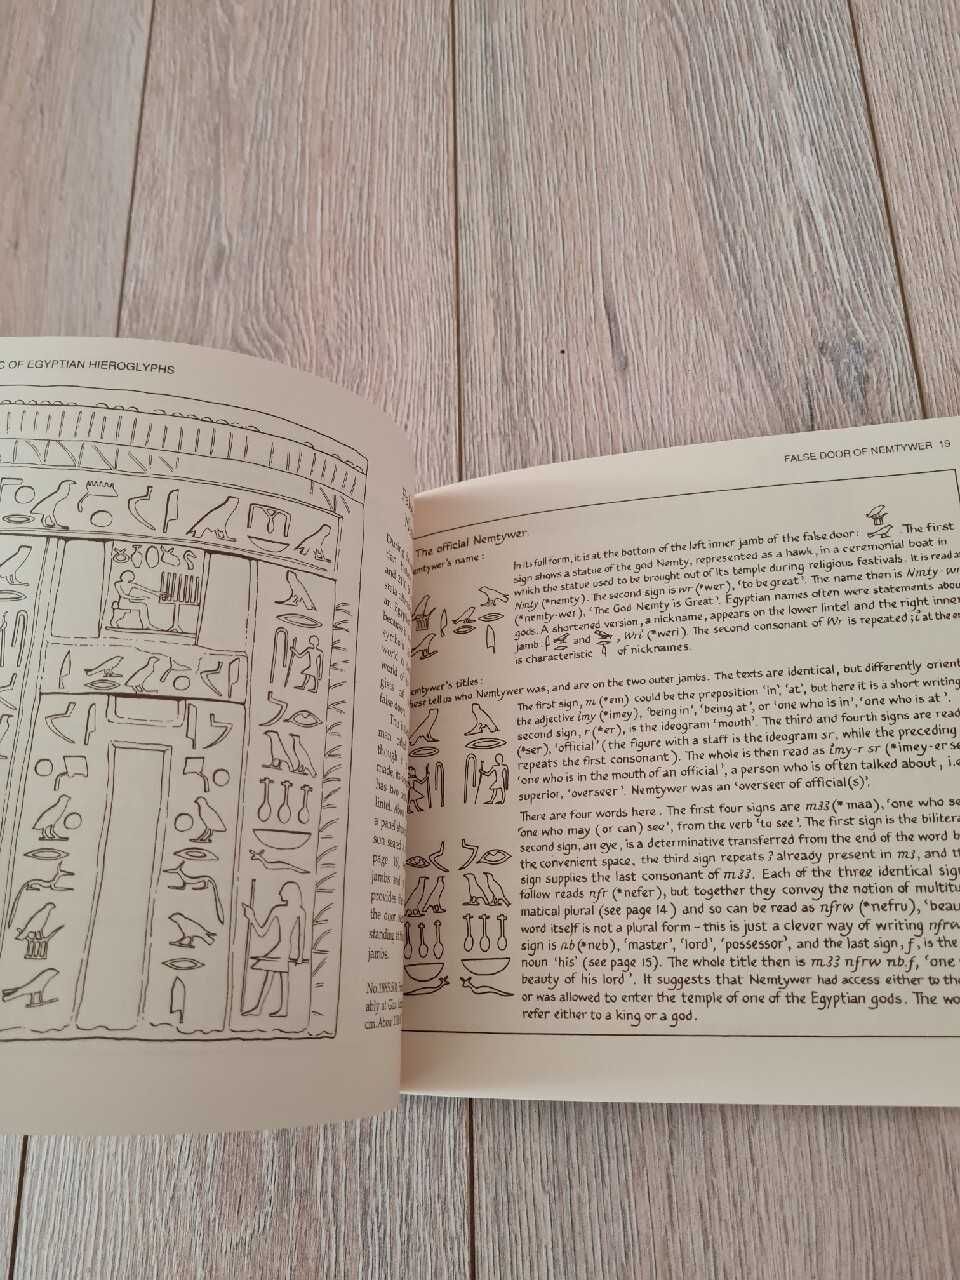 OF EGYPTIAN HIEROGLYPHS
During
and
became
world of
world of
false door
man called
though
made, its
has two
lintel.
a panel
son seated
page 18,
jambs and
provides
the door
standing at the
jambs.
FALSE DOOR OF NEMTYWER 19
The official Nemtywer.
emtywer's name:
In its full form, it is at the bottom of the left inner jamb of the false door: . The first
sign shows a statue of the god Nemty, represented as a hawk, in a ceremonial boat in
which the statue used to be brought out of its temple during religious festivals. It is read as
Nmty (*nemty). The second sign is wr (*wer), 'to be great'. The name then is Nmty-wr
(*nemty-wer), 'The God Nemty is Great'. Egyptian names often were statements about
gods. A shortened version, a nickname, appears on the lower lintel and the right inner
jamb: and , Wri (*weri). The second consonant of Wr is repeated; i at the en
is characteristic of nicknames.
emtywer's titles:
hese tell us who Nemtywer was, and are on the two outer jambs. The texts are identical, but differently orient
The first sign, m (*em) could be the preposition 'in', 'at', but here it is a short writing
the adjective imy (*imey), 'being in', 'being at', or 'one who is in', 'one who is at'.
second sign, r (*er), is the ideogram 'mouth'. The third and fourth signs are read
(*ser), 'official' (the figure with a staff is the ideogram sr, while the preceding
repeats the first consonant). The whole is then read as imy-r sr (*imey-er se
'one who is in the mouth of an official', a person who is often talked about, i.e
superior, 'overseer'. Nemtywer was an 'overseer of official(s)'.
There are four words here. The first four signs are m33 (*maa), 'one who se
'one who may (or can) see', from the verb 'to see'. The first sign is the bilitera
second sign, an eye, is a determinative transferred from the end of the word b
the convenient space, the third sign repeats 3 already present in m3, and th
sign supplies the last consonant of m33. Each of the three identical sign
follow reads nfr (*nefer), but together they convey the notion of multitu
matical plural (see page 14) and so can be read as nfrw (*nefru), 'beau
word itself is not a plural form – this is just a clever way of writing nfrw
sign is nb (*neb), 'master', 'lord', 'possessor', and the last sign, f, is the
noun 'his' (see page 15). The whole title then is m33 nfrw nb.f, 'one
beauty of his lord'. It suggests that Nemtywer had access either to the
or was allowed to enter the temple of one of the Egyptian gods. The wo
refer either to a king or a god.